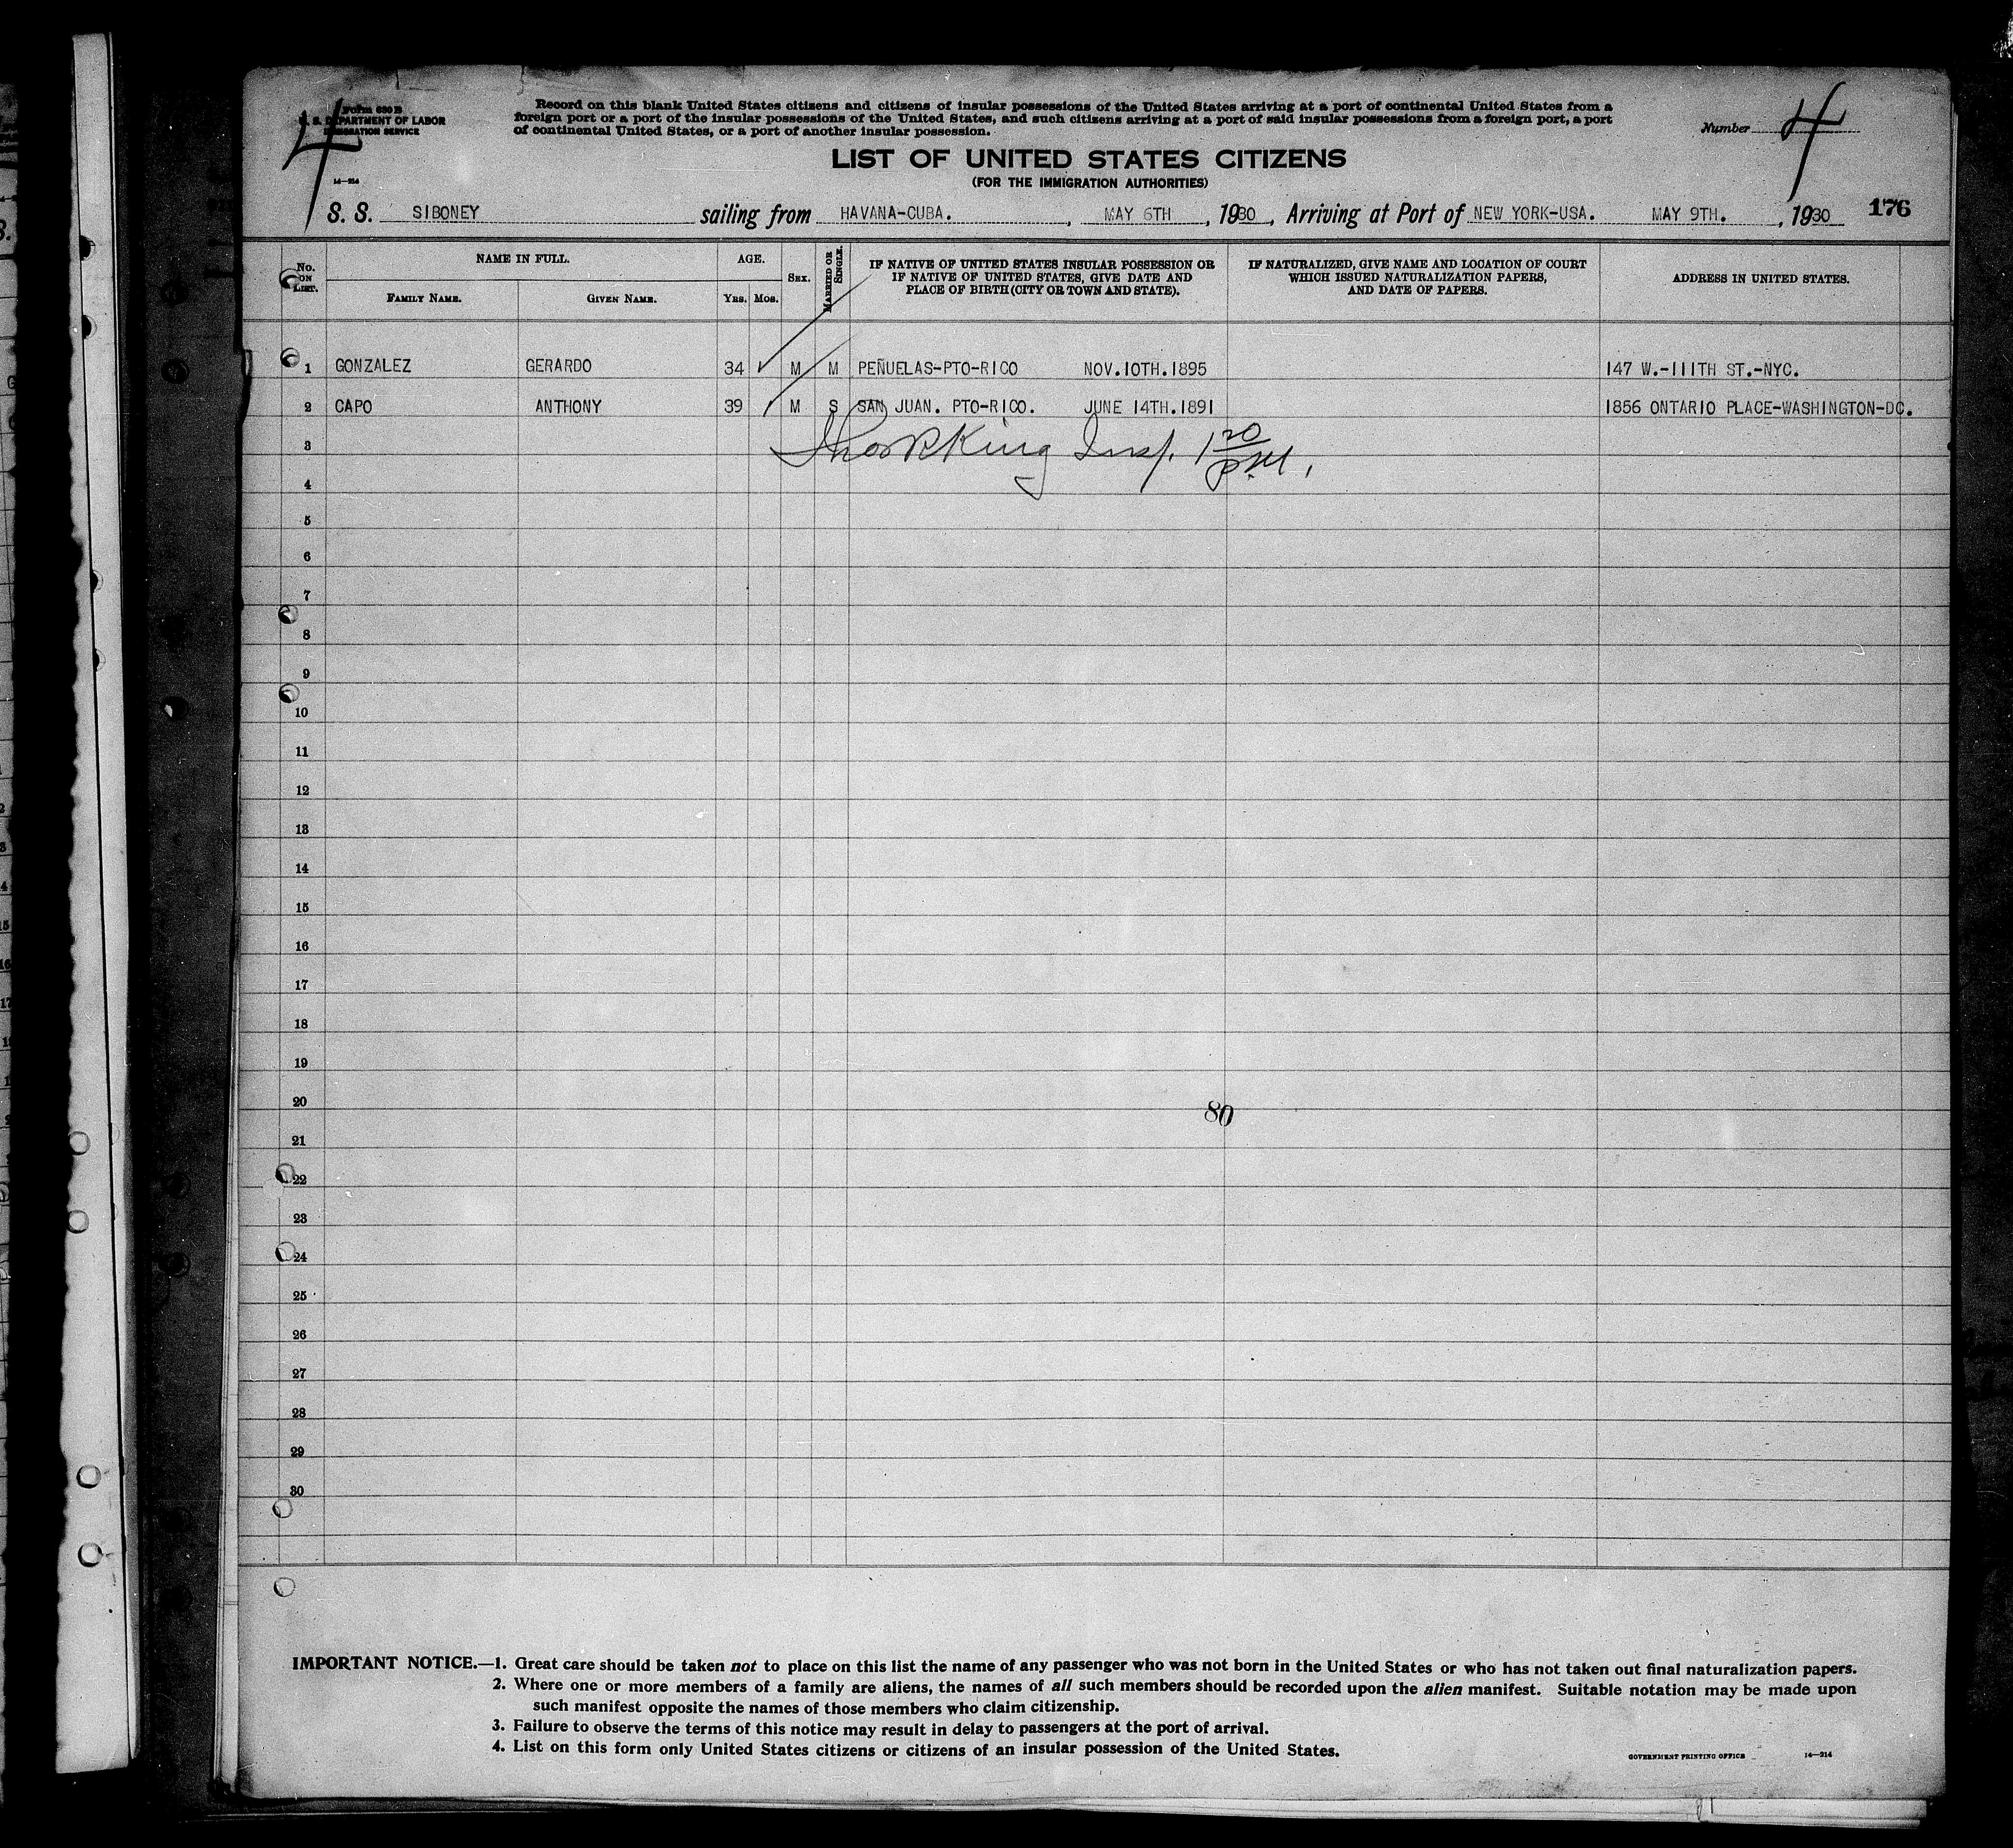 Form 630 B
U. S. DEPARTMENT OF LABOR
IMMIGRATION SERVICE
14—214
4
Record on this blank United States citizens and citizens of insular possessions of the United States arriving at a port of continental United States from a
foreign port or a port of the insular possessions of the United States, and such citizens arriving at a port of said insular possessions from a foreign port, a port
of continental United States, or a port of another insular possession.
Number 4
LIST OF UNITED STATES CITIZENS
(FOR THE IMMIGRATION AUTHORITIES)
S. S. SIBONEY sailing from HAVANA-CUBA. , MAY 6TH , 1930 , Arriving at Port of NEW YORK-USA. MAY 9TH. , 1930 176
No. ON LIST. NAME IN FULL. AGE. SEX. MARRIED OR SINGLE. IF NATIVE OF UNITED STATES INSULAR POSSESSION OR IF NATIVE OF UNITED STATES, GIVE DATE AND PLACE OF BIRTH (CITY OR TOWN AND STATE). IF NATURALIZED, GIVE NAME AND LOCATION OF COURT WHICH ISSUED NATURALIZATION PAPERS, AND DATE OF PAPERS. ADDRESS IN UNITED STATES.
FAMILY NAME. GIVEN NAME. YRS. MOS.
1 GONZALEZ GERARDO 34 M M PEÑUELAS-PTO-RICO NOV.10TH.1895 147 W.-111TH ST.-NYC.
2 CAPO ANTHONY 39 M S SAN JUAN. PTO-RICO. JUNE 14TH.1891 1856 ONTARIO PLACE-WASHINGTON-DC.
3 Insp. 1 20 P.M.
4
5
6
7
8
9
10
11
12
13
14
15
16
17
18
19
20
80
21
22
23
24
25
26
27
28
29
30
IMPORTANT NOTICE.—1. Great care should be taken not to place on this list the name of any passenger who was not born in the United States or who has not taken out final naturalization papers.
2. Where one or more members of a family are aliens, the names of all such members should be recorded upon the alien manifest. Suitable notation may be made upon
such manifest opposite the names of those members who claim citizenship.
3. Failure to observe the terms of this notice may result in delay to passengers at the port of arrival.
4. List on this form only United States citizens or citizens of an insular possession of the United States.
GOVERNMENT PRINTING OFFICE 14—214